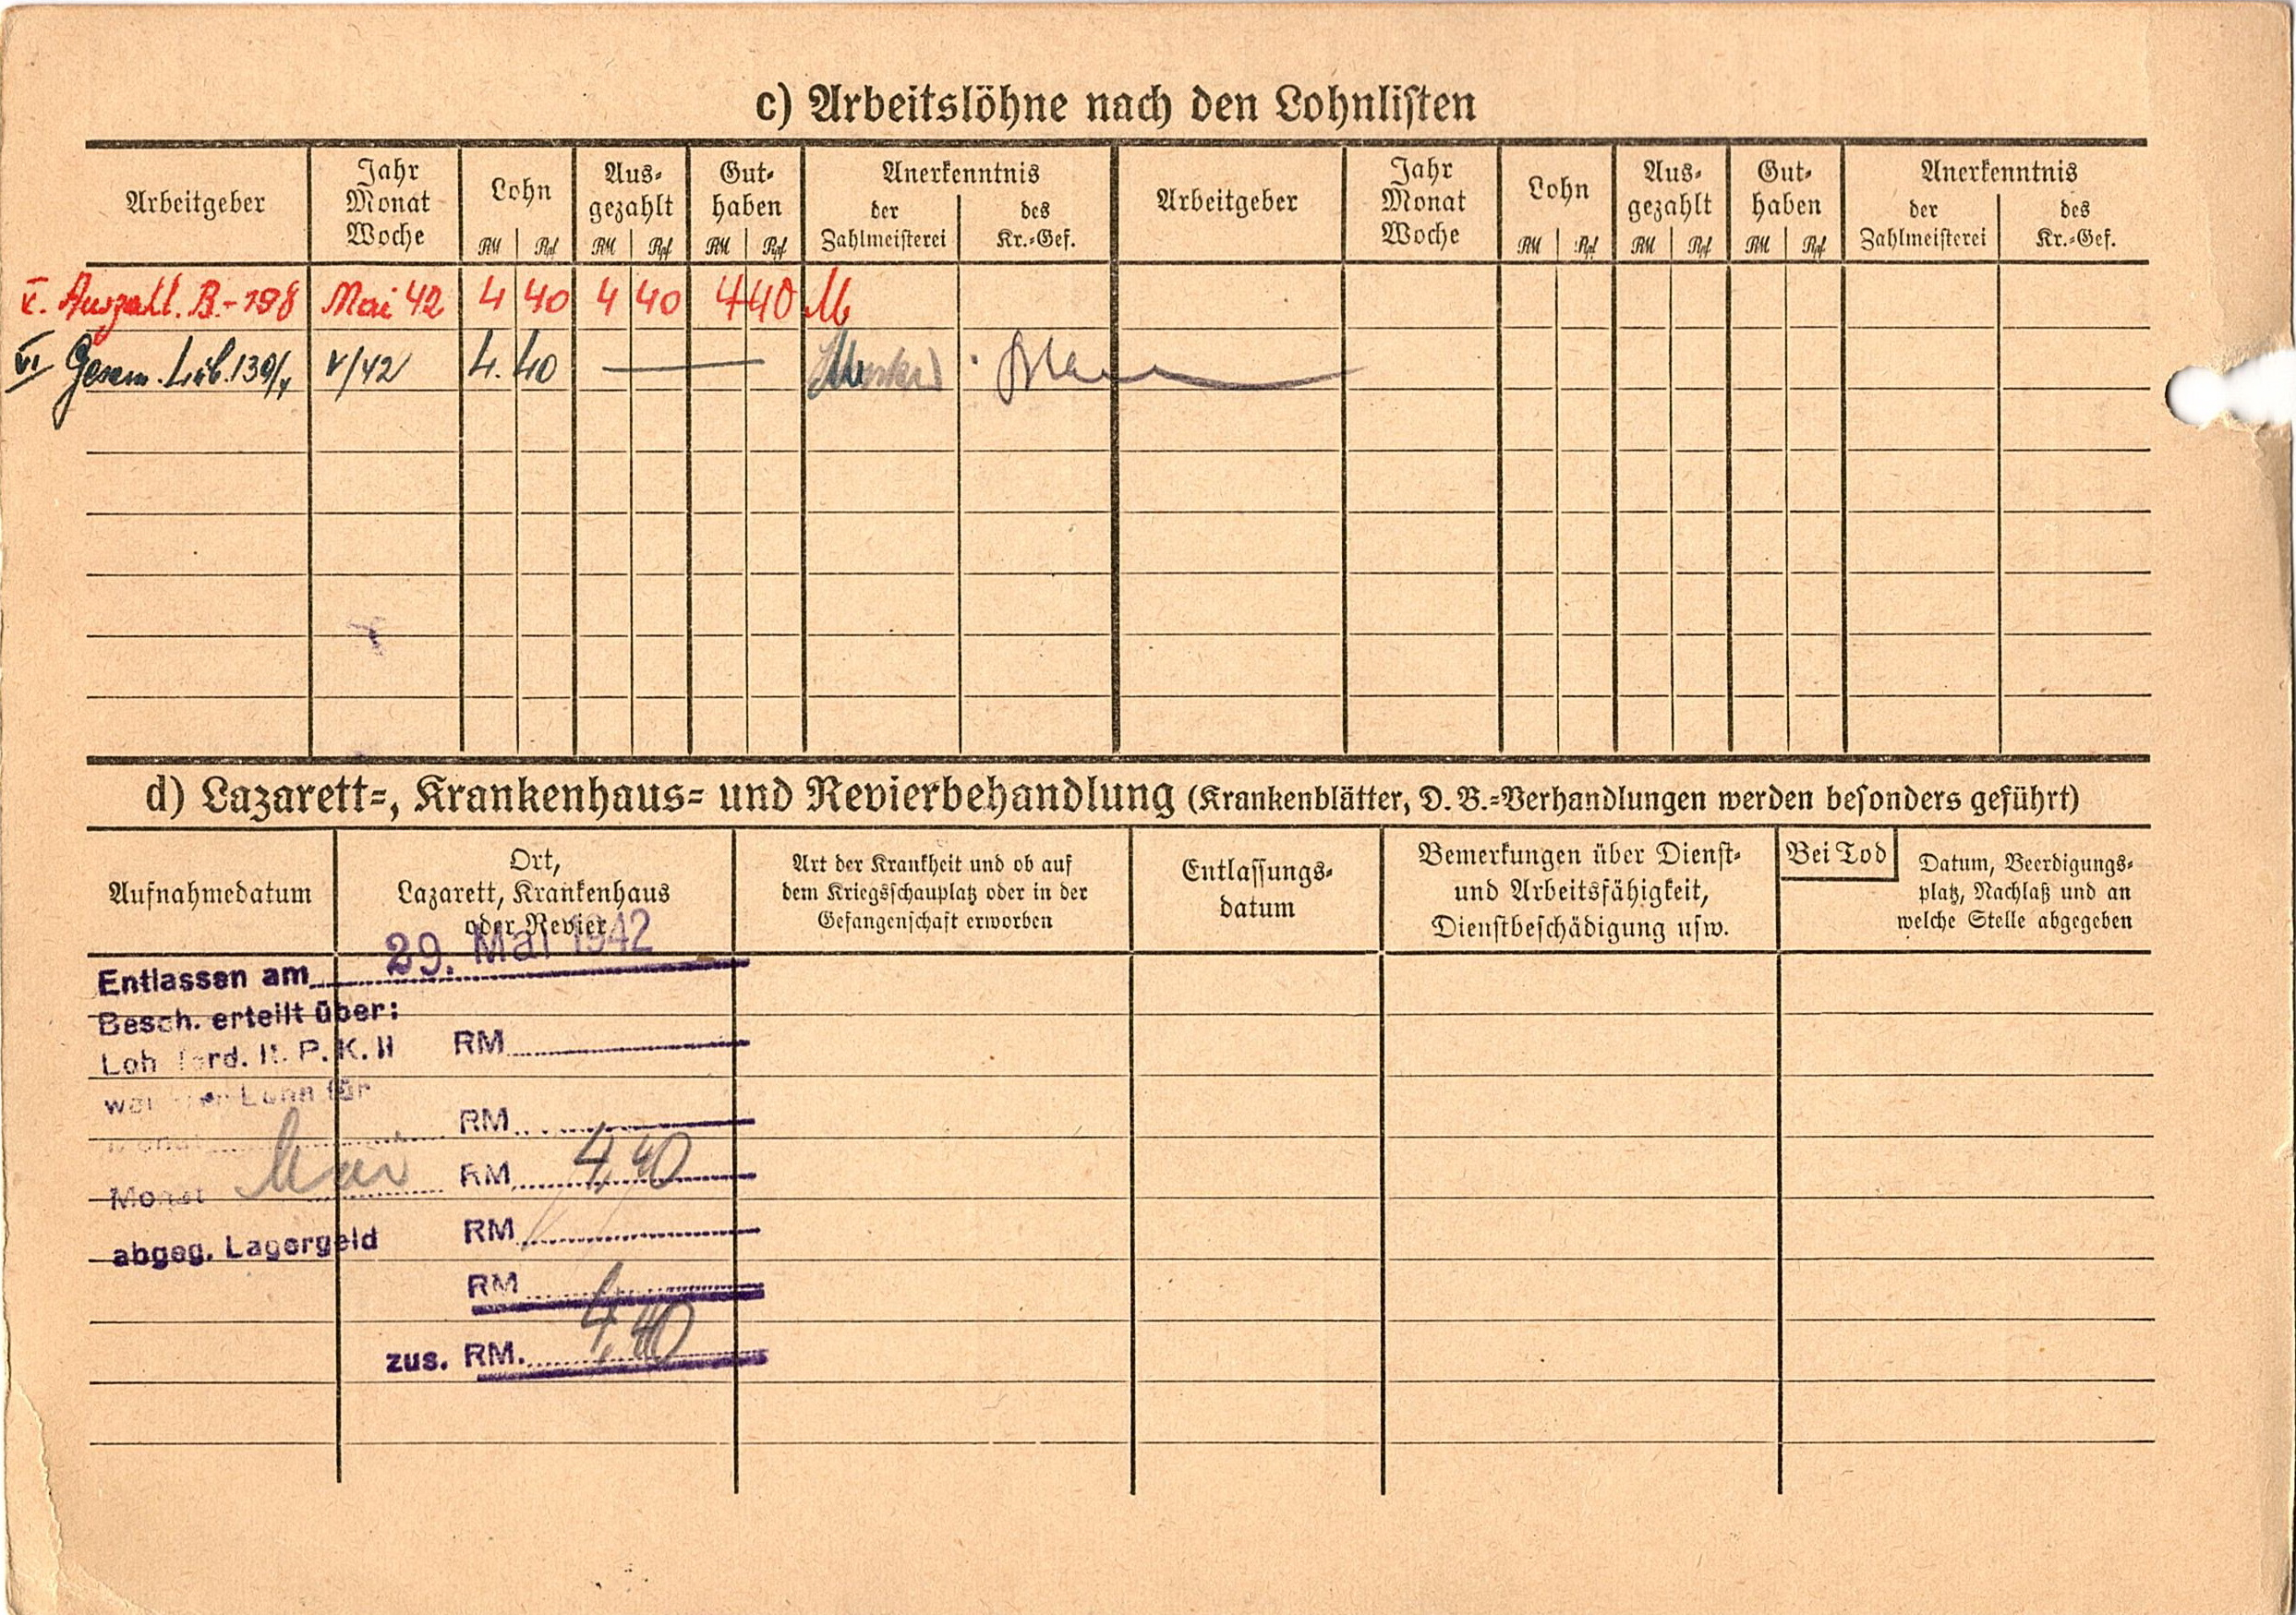 c) Arbeitslöhne nach den Lohnlisten
Arbeitgeber
Jahr
Monat
Woche
Lohn
RM Rpf
Aus-
gezahlt
RM Rpf
Gut-
haben
RM Rpf
Anerkenntnis
der
Zahlmeisterei
des
Kr.-Gef.
Arbeitgeber
Jahr
Monat
Woche
Lohn
RM Rpf
Aus-
gezahlt
RM Rpf
Gut-
haben
RM Rpf
Anerkenntnis
der
Zahlmeisterei
des
Kr.-Gef.
V. Auszahl. B.-198 Mai 42 4 40 4 40 4 40 M
VI V/42 4.40 —
d) Lazarett-, Krankenhaus- und Revierbehandlung (Krankenblätter, D. B.-Verhandlungen werden besonders geführt)
Aufnahmedatum
Ort,
Lazarett, Krankenhaus
oder Revier
Art der Krankheit und ob auf
dem Kriegsschauplatz oder in der
Gefangenschaft erworben
Entlassungs-
datum
Bemerkungen über Dienst-
und Arbeitsfähigkeit,
Dienstbeschädigung usw.
Bei Tod
Datum, Beerdigungs-
platz, Nachlaß und an
welche Stelle abgegeben
Entlassen am 29. Mai 1942
Besch. erteilt über:
P. K. II RM
Lohn für
Monat RM
Monat Mai RM 4,40
abgeg. Lagergeld RM
RM
zus. RM. 4,40